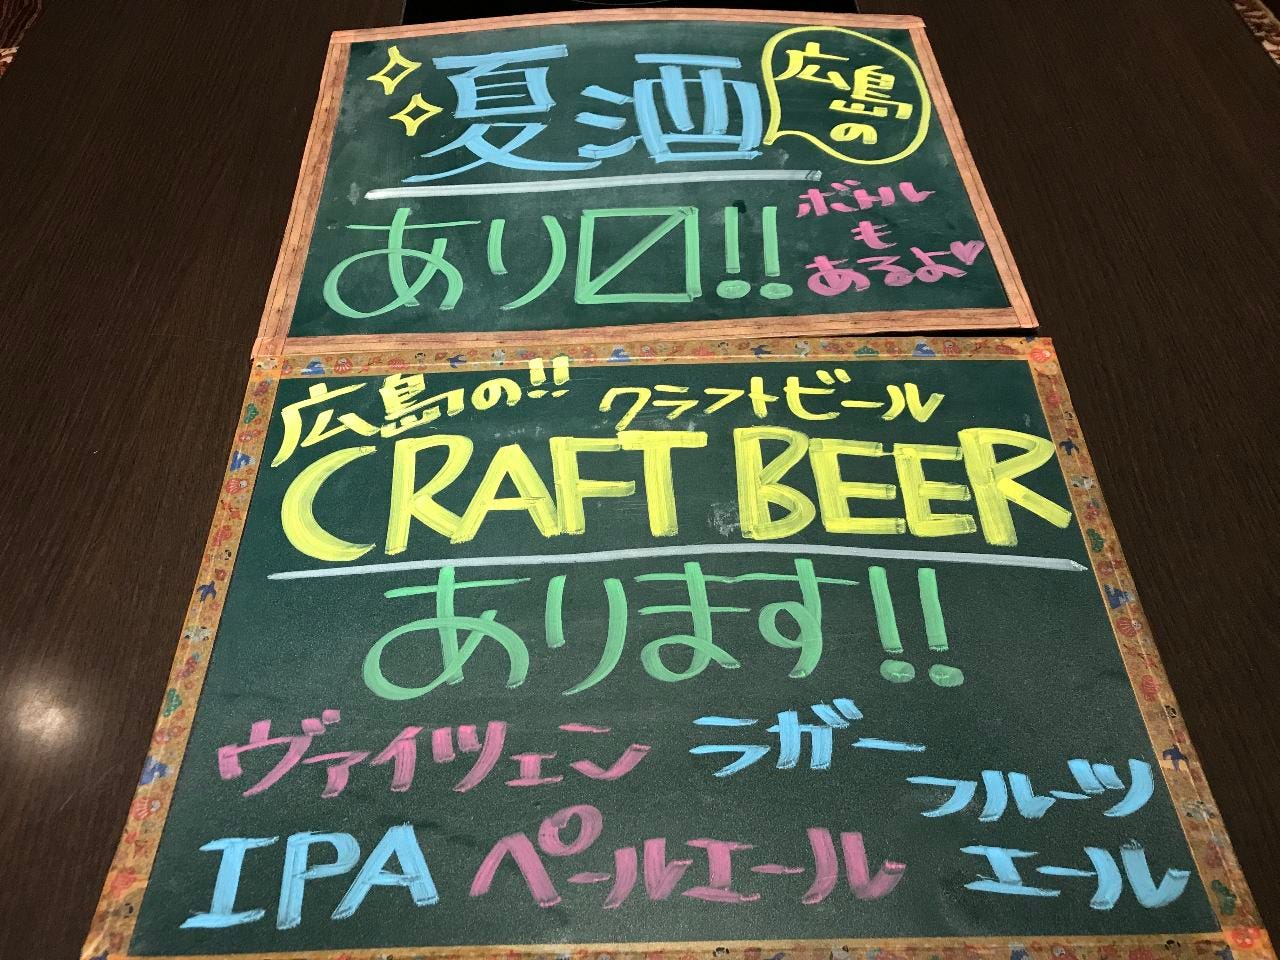 広島の
夏酒
あり〼!!
ボトル
も
あるよ♡
広島の!!
クラフトビール
CRAFT BEER
あります!!
ヴァイツェン
ラガー
フルーツ
エール
IPA
ペールエール